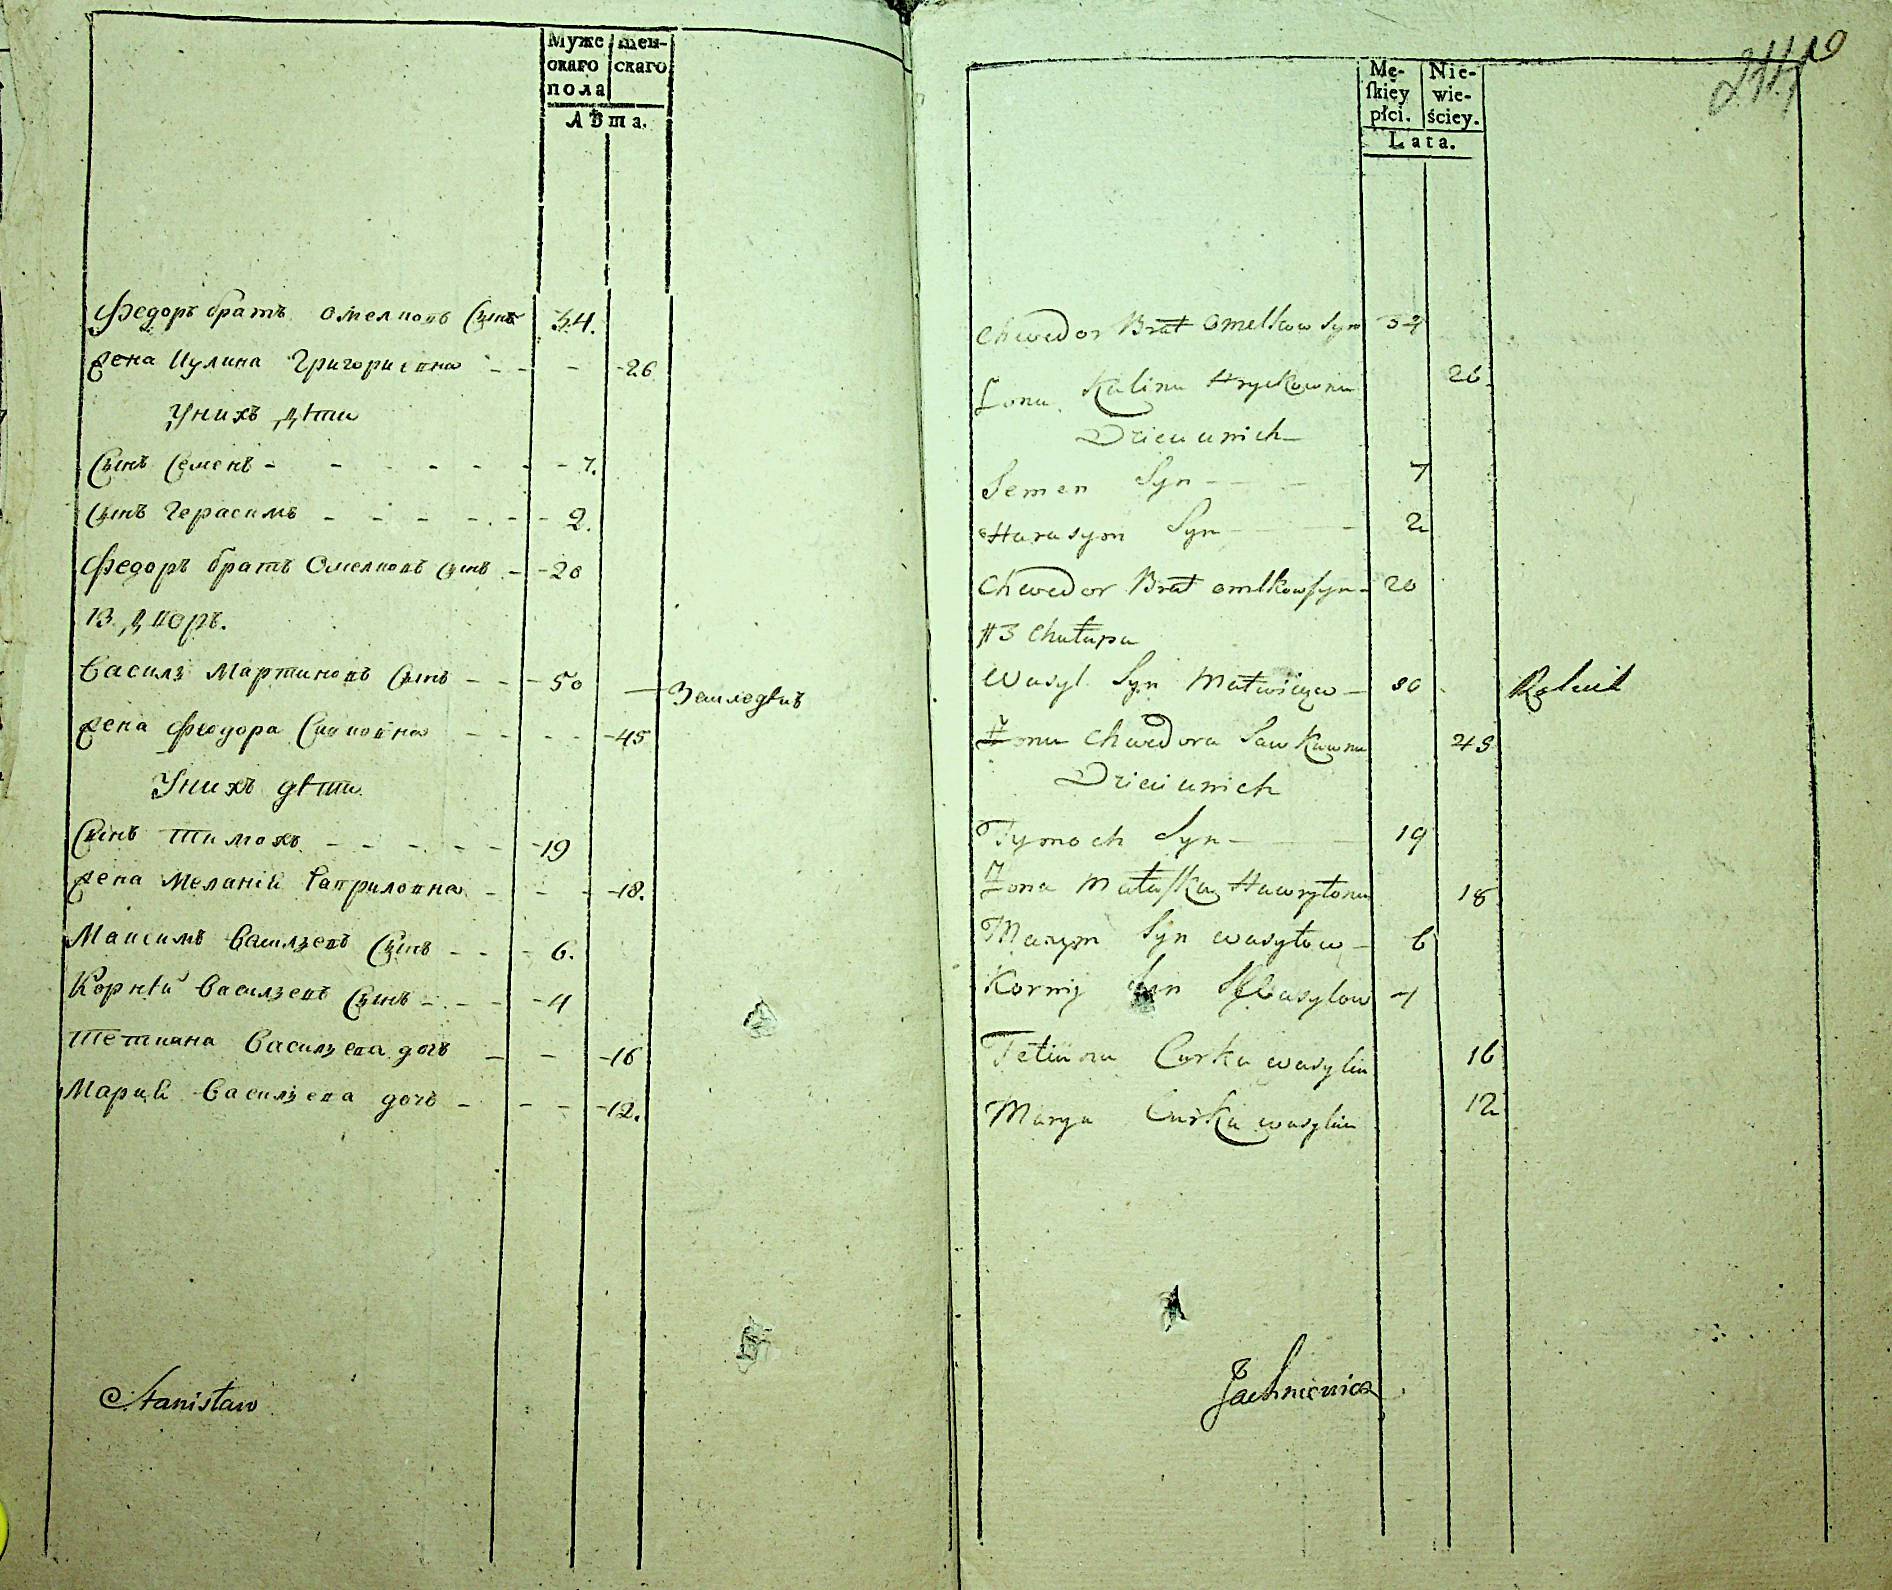 Муже
скаго
пола
Жен-
скаго
Лѣта.
Федоръ братъ Омелковъ Сынъ 34.
Жена Кулина Григориевна - - - 26
У нихъ дѣти
Сынъ Семенъ - - - - - - 7.
Сынъ Герасимъ - - - - - - 2.
Федоръ братъ Омелковъ Сынъ - - 20
13 дворъ.
Василь Мартиновъ Сынъ - - - 50 — Земледѣлецъ
Жена Феодора Савковна - - - - 45
У нихъ дѣти
Сынъ Тимохъ - - - - - - 19
Жена Меланія Гавриловна - - - - 18.
Максимъ Васильевъ Сынъ - - - 6.
Корнѣй Васильевъ Сынъ - - - - 4
Тетиана Васильева дочь - - - 16
Мария Васильева дочь - - - - 12.
Stanisław
244
10
Mę-
ſkiey
płci.
Nie-
wie-
ściey.
Lata.
Chwedor Brat Omelkow Syn 34
Żona Kalina Hryckowna 26
Dzieci u nich
Semen Syn - - - 7
Harasym Syn - - 2
Chwedor Brat omelkow syn - 20
13 Chałupa
Wasyl Syn Matwiejow - 50 Rolnik
Żona Chwedora Sawkowna 45
Dzieci u nich
Tymoch Syn - - 19
Żona Małaſka Hawryłowna 18
Maxym Syn wasyłow - 6
Korniy Syn Wasylow 4
Tetiana Curka wasylia 16
Marya Curka wasylia 12
Jachniewicz